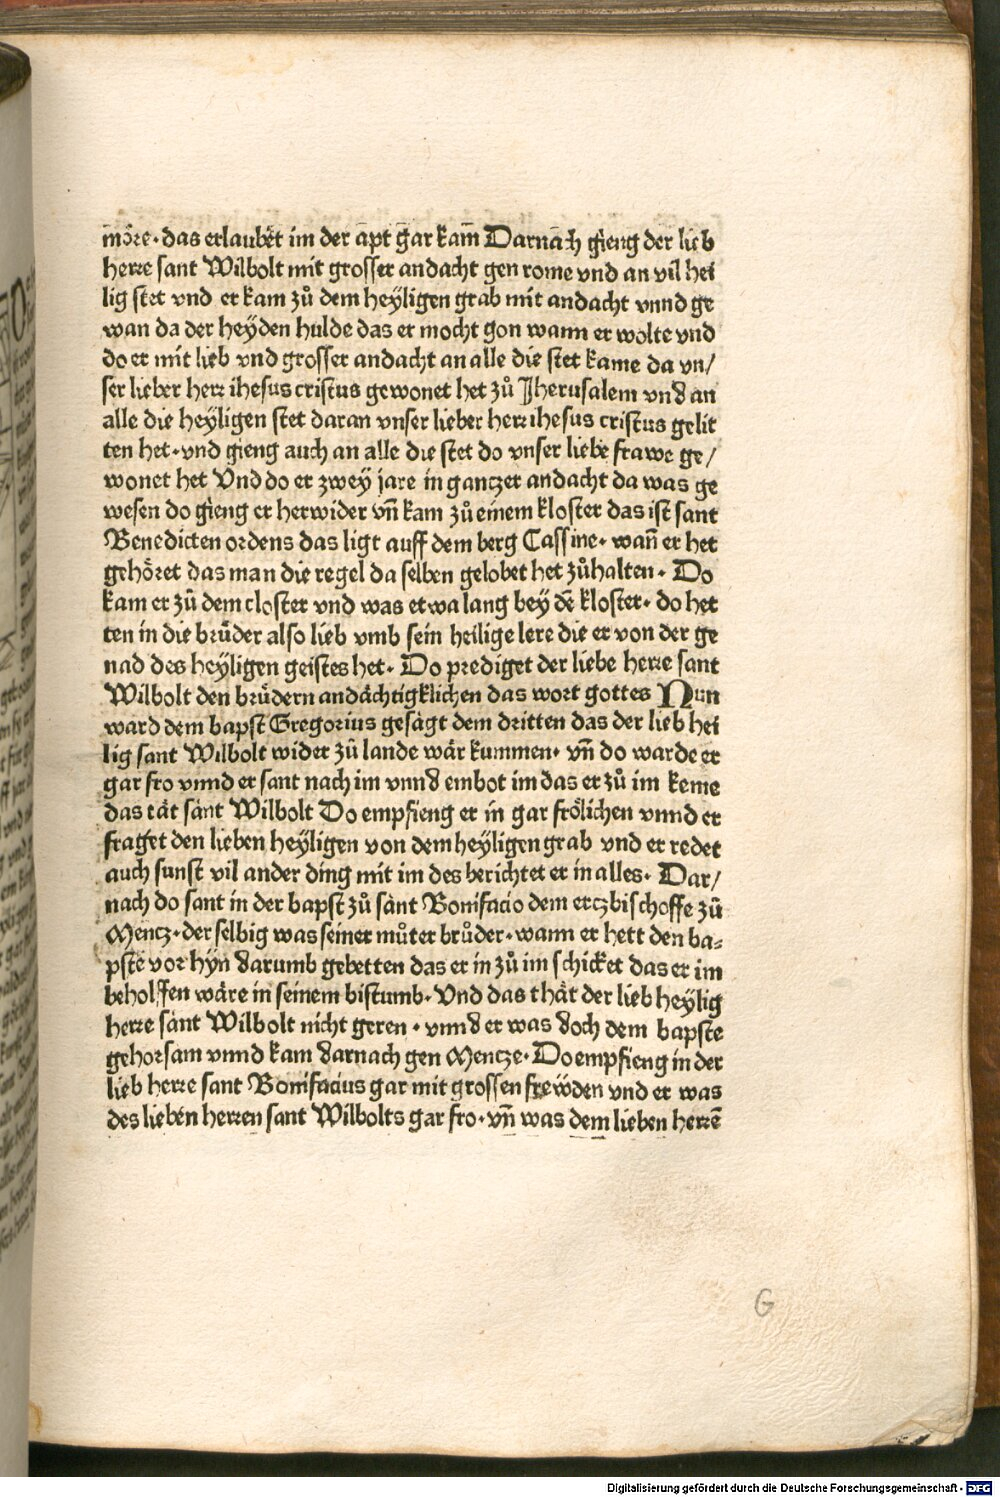 möre· das erlaubet im der apt gar kam̄ Darnach gieng der lieb
herre sant Wilbolt mit grosser andacht gen rome vnd an vil hei
lig stet vnd er kam zů dem heyligen grab mit andacht vnnd ge
wan da der heyden hulde das er mocht gon wann er wolte vnd
do er mit lieb vnd grosser andacht an alle die stet kame da vn/
ser lieber herr ihesus cristus gewonet het zů Jherusalem vnd an
alle die heyligen stet daran vnser lieber herr ihesus cristus gelit
ten het· vnd gieng auch an alle die stet do vnser liebe frawe ge/
wonet het Vnd do er zwey jare in gantzer andacht da was ge
wesen do gieng er herwider vn̄ kam zů einem kloster das ist sant
Benedicten ordens das ligt auff dem berg Cassine· wan̄ er het
gehöret das man die regel da selben gelobet het zůhalten· Do
kam er zů dem closter vnd was etwa lang bey dē kloster· do het
ten in die brůder also lieb vmb sein heilige lere die er von der ge
nad des heyligen geistes het· Do prediget der liebe herre sant
Wilbolt den brůdern andächtigklichen das wort gottes Nun
ward dem bapst Gregorius gesagt dem dritten das der lieb hei
lig sant Wilbolt wider zů lande wär kummen· vn̄ do warde er
gar fro vnnd er sant nach im vnnd embot im das er zů im keme
das tät sant Wilbolt Do empfieng er in gar frölichen vnnd er
fraget den lieben heyligen von dem heyligen grab vnd er redet
auch sunst vil ander ding mit im des berichtet er in alles· Dar/
nach do sant in der bapst zů sant Bonifacio dem ertzbischoffe zů
Mentz· der selbig was seiner můter brůder· wann er hett den ba⸗
pste vor hyn darumb gebetten das er in zů im schicket das er im
beholffen wäre in seinem bistumb· Vnd das thät der lieb heylig
herre sant Wilbolt nicht geren· vnnd er was doch dem bapste
gehorsam vnnd kam darnach gen Mentze· Do empfieng in der
lieb herre sant Bonifacius gar mit grossen frewden vnd er was
des lieben herren sant Wilbolts gar fro· vn̄ was dem lieben herrē
G
Digitalisierung gefördert durch die Deutsche Forschungsgemeinschaft - DFG